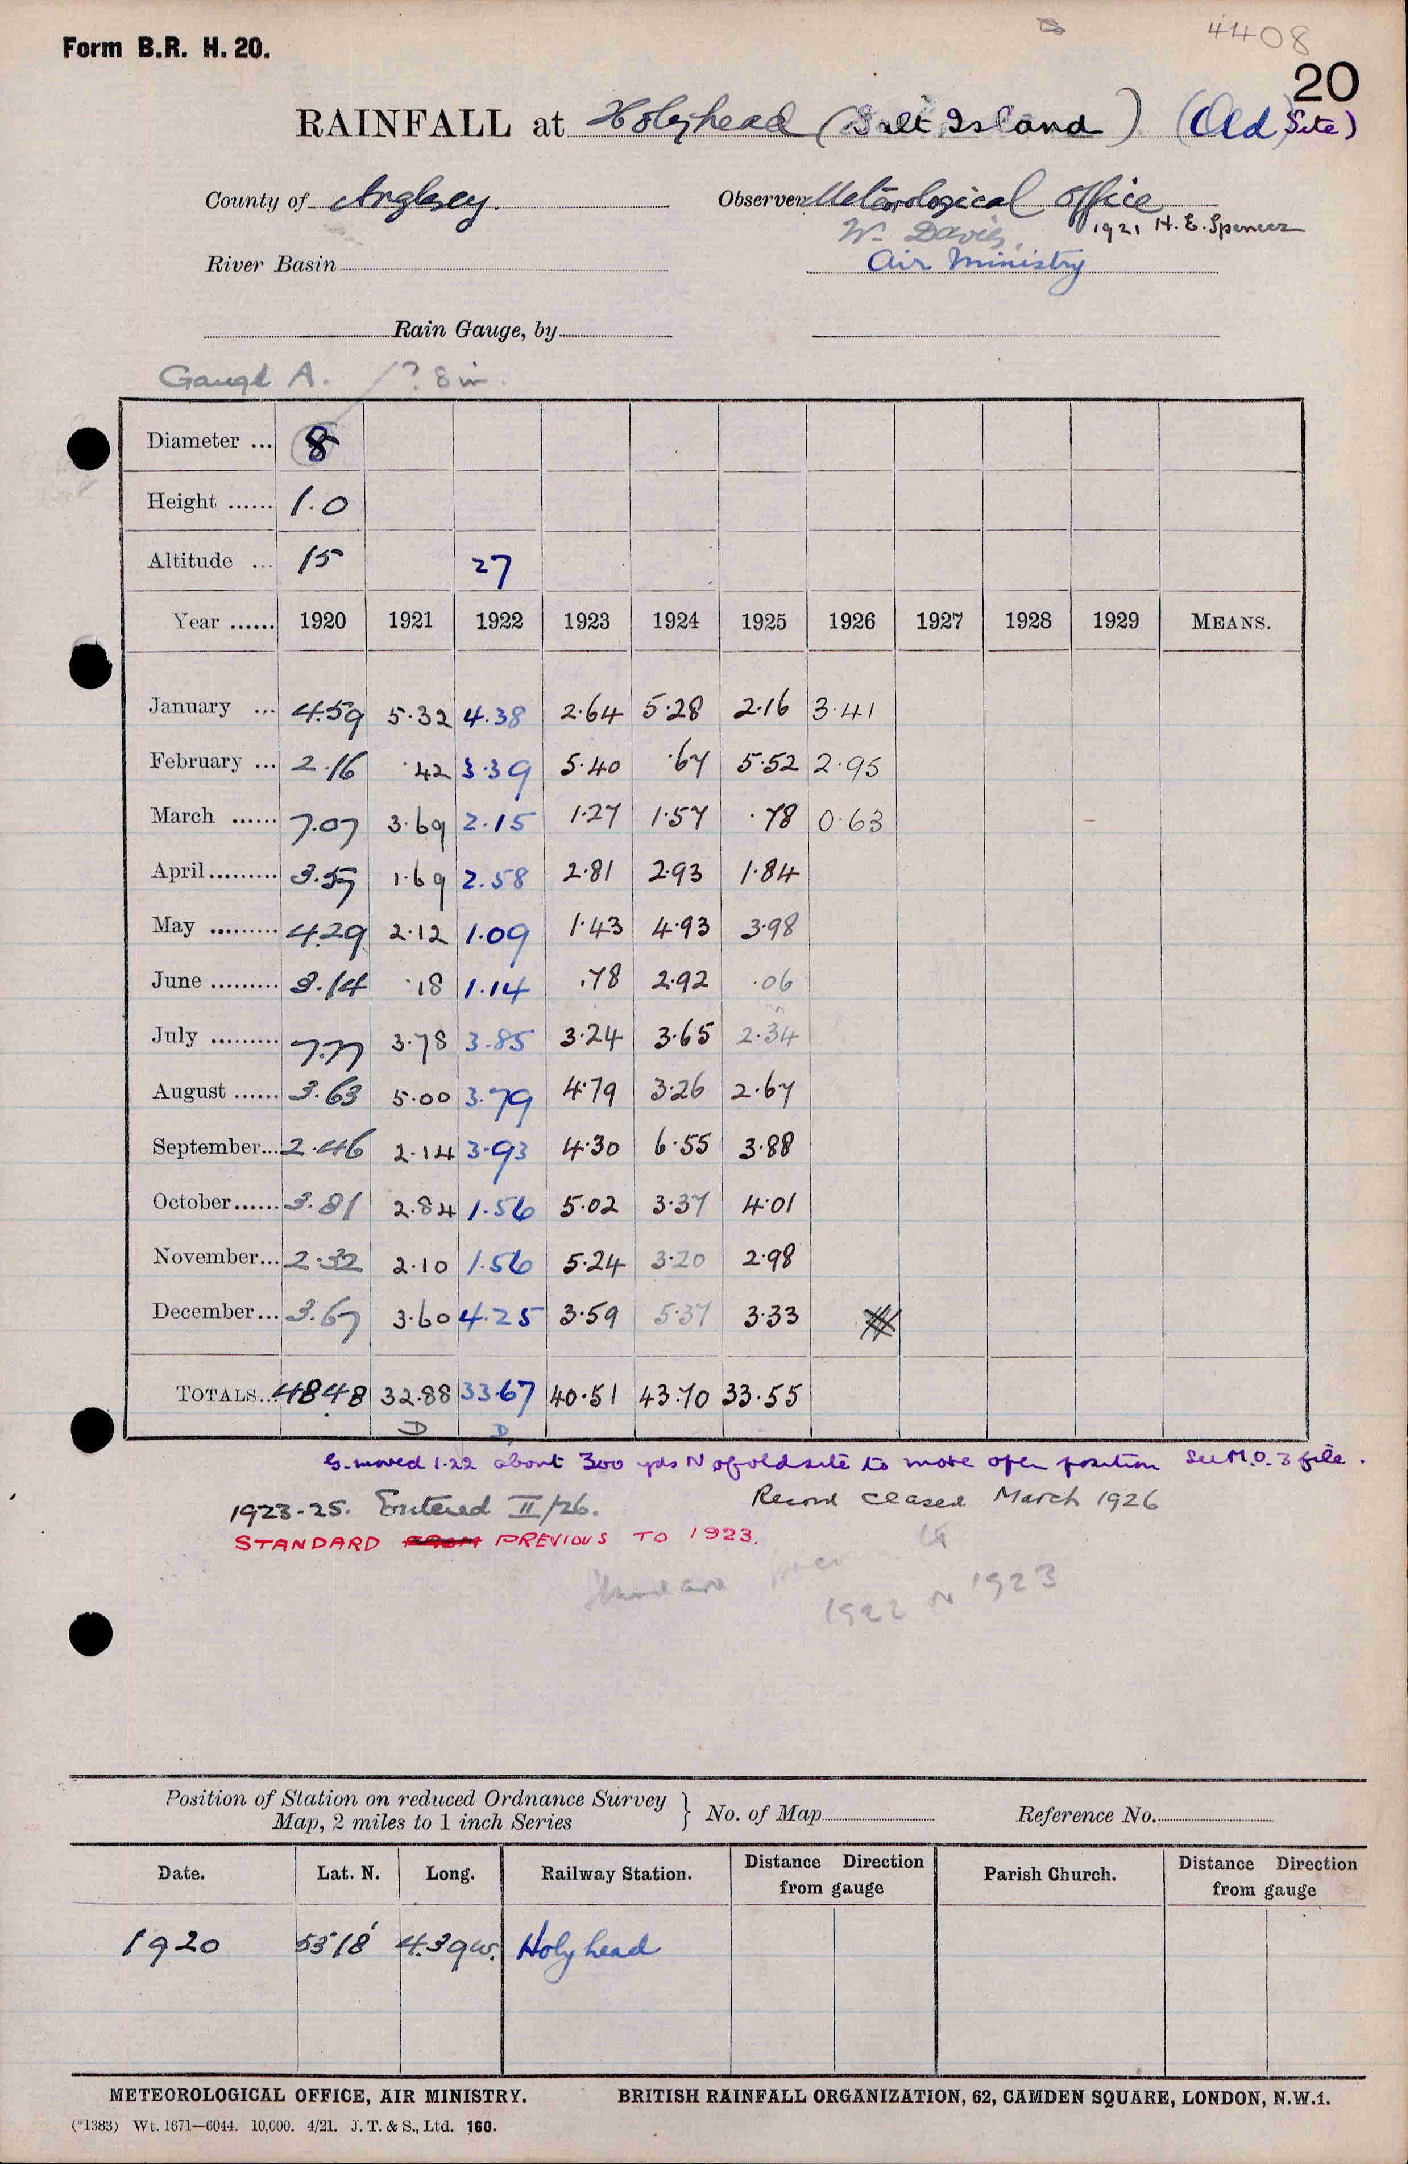 4408
Form B.R. H. 20.
20
RAINFALL at Holyhead (Salt Island) (Old Site)
County of Anglesey. Observer Meteorological Office
W. Davies, 1921 H. E. Spencer
River Basin Air Ministry
Rain Gauge, by
Gauge A. ? 8 in.
Diameter ... 8
Height ...... 1.0
Altitude ... 15 27
Year ...... 1920 1921 1922 1923 1924 1925 1926 1927 1928 1929 MEANS.
January ... 4.59 5.32 4.38 2.64 5.28 2.16 3.41
February ... 2.16 .42 3.39 5.40 .67 5.52 2.95
March ...... 7.07 3.69 2.15 1.27 1.57 .78 0.63
April ......... 3.57 1.69 2.58 2.81 2.93 1.84
May ......... 4.29 2.12 1.09 1.43 4.93 3.98
June ......... 3.14 .18 1.14 .78 2.92 .06
July ......... 7.77 3.78 3.85 3.24 3.65 2.34
August ...... 3.63 5.00 3.79 4.79 3.26 2.67
September... 2.46 2.14 3.93 4.30 6.55 3.88
October...... 3.81 2.84 1.56 5.02 3.37 4.01
November... 2.32 2.10 1.56 5.24 3.20 2.98
December... 3.67 3.60 4.25 3.59 5.37 3.33
TOTALS... 48.48 32.88 33.67 40.51 43.70 33.55
D D
G. moved 1.22 about 300 yds N of old site to more open position See M.O. 3 file.
1923-25. Entered II/26. Record ceased March 1926
STANDARD FROM PREVIOUS TO 1923.
Standard
1922 or 1923
Position of Station on reduced Ordnance Survey
Map, 2 miles to 1 inch Series } No. of Map Reference No.
Date. Lat. N. Long. Railway Station. Distance Direction from gauge Parish Church. Distance Direction from gauge
1920 53°18′ 4.39 w. Holyhead
METEOROLOGICAL OFFICE, AIR MINISTRY. BRITISH RAINFALL ORGANIZATION, 62, CAMDEN SQUARE, LONDON, N.W.1.
(*1383) Wt. 1671—6044. 10,000. 4/21. J. T. & S., Ltd. 160.